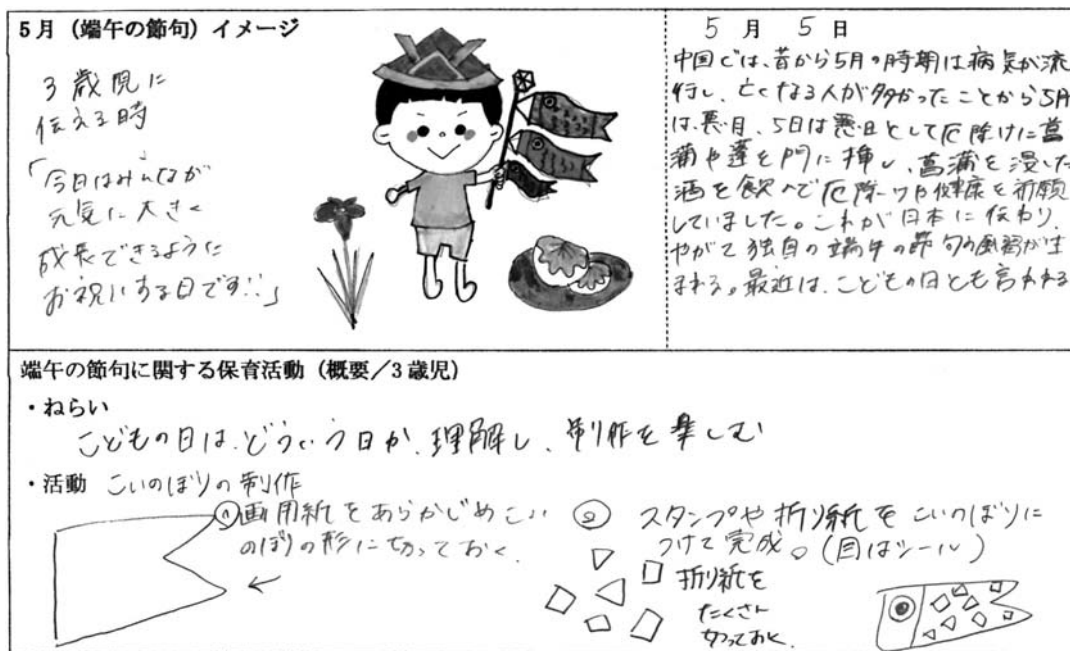 5月（端午の節句）イメージ
3歳児に
伝える時
「今日はみんなが
元気に大きく
成長できるように
お祝いする日です!!」
5月5日
中国では、昔から5月の時期は病気が流
行し、亡くなる人が多かったことから5月
は、悪月、5日は悪日として厄除けに菖
蒲や蓬を門に挿し、菖蒲を浸した
酒を飲んで厄除けや健康を祈願
していました。これが日本に伝わり、
やがて独自の端午の節句の風習が生
まれる。最近は、こどもの日とも言われる
端午の節句に関する保育活動（概要／3歳児）
・ねらい
こどもの日は、どういう日か、理解し、制作を楽しむ
・活動 こいのぼりの制作
①画用紙をあらかじめこい
のぼりの形に切っておく。
② スタンプや折り紙をこいのぼりに
つけて完成。(目はシール)
折り紙を
たくさん
切っておく。